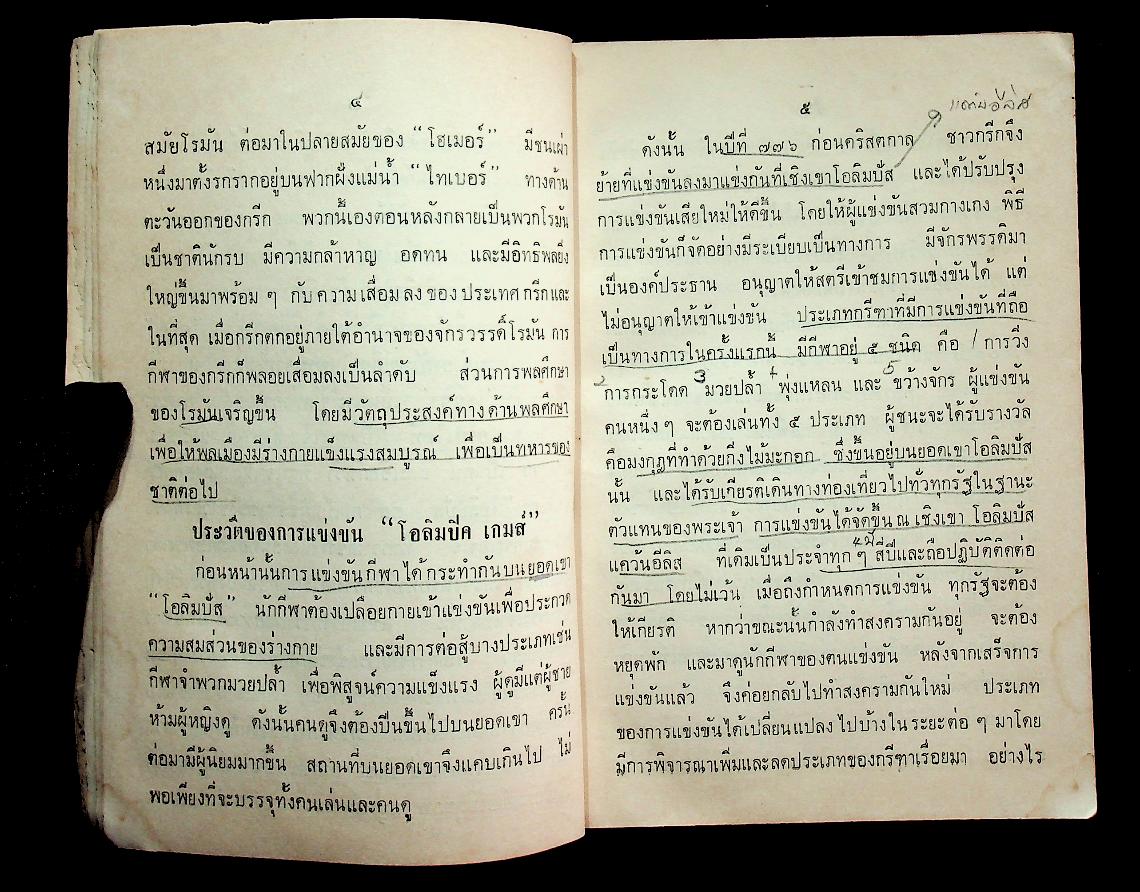 ๔
สมัยโรมัน ต่อมาในปลายสมัยของ “โฮเมอร์” มีชนเผ่า
หนึ่งมาตั้งรกรากอยู่บนฟากฝั่งแม่น้ำ “ไทเบอร์” ทางด้าน
ตะวันออกของกรีก พวกนี้เองตอนหลังกลายเป็นพวกโรมัน
เป็นชาตินักรบ มีความกล้าหาญ อดทน และมีอิทธิพลยิ่ง
ใหญ่ขึ้นมาพร้อม ๆ กับความเสื่อมลงของประเทศกรีกและ
ในที่สุด เมื่อกรีกตกอยู่ภายใต้อำนาจของจักรวรรดิ์โรมัน การ
กีฬาของกรีกก็พลอยเสื่อมลงเป็นลำดับ ส่วนการพลศึกษา
ของโรมันเจริญขึ้น โดยมีวัตถุประสงค์ทางด้านพลศึกษา
เพื่อให้พลเมืองมีร่างกายแข็งแรงสมบูรณ์ เพื่อเป็นทหารของ
ชาติต่อไป
ประวัติของการแข่งขัน “โอลิมปิค เกมส์”
ก่อนหน้านั้นการแข่งขันกีฬาได้กระทำกันบนยอดเขา
“โอลิมปัส” นักกีฬาต้องเปลือยกายเข้าแข่งขันเพื่อประกวด
ความสมส่วนของร่างกาย และมีการต่อสู้บางประเภทเช่น
กีฬาจำพวกมวยปล้ำ เพื่อพิสูจน์ความแข็งแรง ผู้ดูมีแต่ผู้ชาย
ห้ามผู้หญิงดู ดังนั้นคนดูจึงต้องปีนขึ้นไปบนยอดเขา ครั้น
ต่อมามีผู้นิยมมากขึ้น สถานที่บนยอดเขาจึงแคบเกินไป ไม่
พอเพียงที่จะบรรจุทั้งคนเล่นและคนดู
๕
ดังนั้น ในปีที่ ๗๗๖ ก่อนคริสตกาล ชาวกรีกจึง
ย้ายที่แข่งขันลงมาแข่งกันที่เชิงเขาโอลิมปัส และได้ปรับปรุง
การแข่งขันเสียใหม่ให้ดีขึ้น โดยให้ผู้แข่งขันสวมกางเกง พิธี
การแข่งขันก็จัดอย่างมีระเบียบเป็นทางการ มีจักรพรรดิมา
เป็นองค์ประธาน อนุญาตให้สตรีเข้าชมการแข่งขันได้ แต่
ไม่อนุญาตให้เข้าแข่งขัน ประเภทกรีฑาที่มีการแข่งขันที่ถือ
เป็นทางการในครั้งแรกนี้ มีกีฬาอยู่ ๕ ชนิด คือ 1 การวิ่ง
2 การกระโดด 3 มวยปล้ำ 4 พุ่งแหลน และ 5 ขว้างจักร ผู้แข่งขัน
คนหนึ่ง ๆ จะต้องเล่นทั้ง ๕ ประเภท ผู้ชนะจะได้รับรางวัล
คือมงกุฎที่ทำด้วยกิ่งไม้มะกอก ซึ่งขึ้นอยู่บนยอดเขาโอลิมปัส
นั้น และได้รับเกียรติเดินทางท่องเที่ยวไปทั่วทุกรัฐในฐานะ
ตัวแทนของพระเจ้า การแข่งขันได้จัดขึ้น ณ เชิงเขา โอลิมปัส
แคว้นอีลิส ที่เดิมเป็นประจำทุก ๆ สี่ปีและถือปฏิบัติติดต่อ
กันมา โดยไม่เว้น เมื่อถึงกำหนดการแข่งขัน ทุกรัฐจะต้อง
ให้เกียรติ หากว่าขณะนั้นกำลังทำสงครามกันอยู่ จะต้อง
หยุดพัก และมาดูนักกีฬาของตนแข่งขัน หลังจากเสร็จการ
แข่งขันแล้ว จึงค่อยกลับไปทำสงครามกันใหม่ ประเภท
ของการแข่งขันได้เปลี่ยนแปลงไปบ้างในระยะต่อ ๆ มาโดย
มีการพิจารณาเพิ่มและลดประเภทของกรีฑาเรื่อยมา อย่างไร